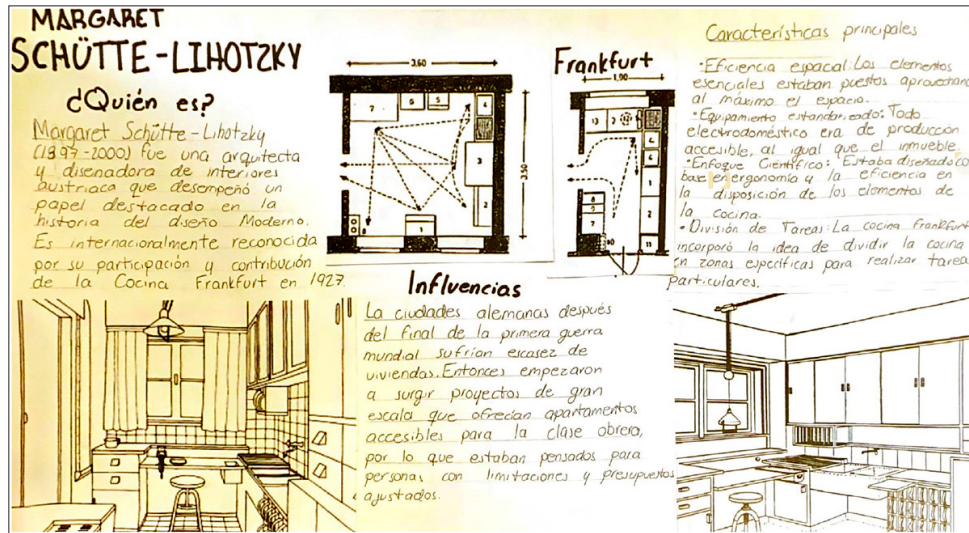 MARGARET
SCHÜTTE-LIHOTZKY
¿Quién es?
Margaret Schütte-Lihotzky
(1897-2000) fue una arquitecta
y diseñadora de interiores
austriaca que desempeñó un
papel destacado en la
historia del diseño Moderno.
Es internacionalmente reconocida
por su participación y contribución
de la Cocina Frankfurt en 1927.
3,60
3,50
7
6
5
4
3
2
1
8
Frankfurt
1,90
13
3
4
6
1
2
11
8
7
10
Influencias
La ciudades alemanas después
del final de la primera guerra
mundial sufrían escasez de
viviendas. Entonces empezaron
a surgir proyectos de gran
escala que ofrecían apartamentos
accesibles para la clase obrera,
por lo que estaban pensados para
personas con limitaciones y presupuestos
ajustados.
Características principales
•Eficiencia espacial: Los elementos
esenciales estaban puestos aprovechand
al máximo el espacio.
•Equipamiento estandarizado: Todo
electrodoméstico era de producción
accesible, al igual que el inmueble.
•Enfoque Científico: Estaba diseñado co
base en ergonomía y la eficiencia en
la disposición de los elementos de
la cocina.
•División de Tareas: La cocina Frankfurt
incorporó la idea de dividir la cocina
en zonas específicas para realizar tarea
particulares.